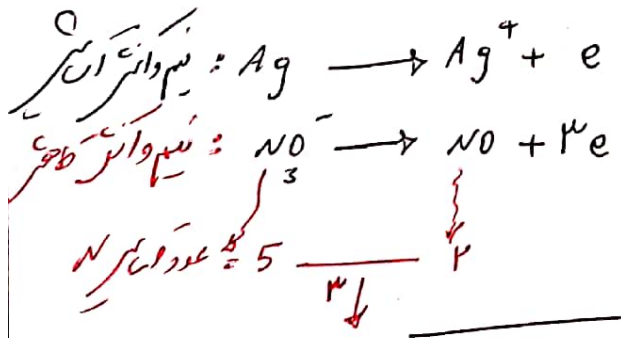 نیم واکنش اکسایش : Ag → Ag⁺ + e
نیم واکنش کاهش : NO₃⁻ → NO + ۳e
عدد اکسایش N : 5 ___ ۲
۳↓